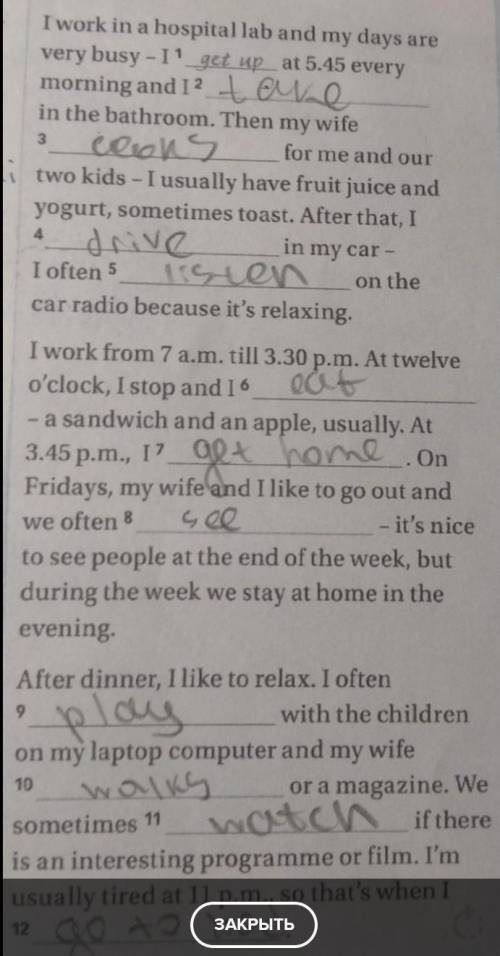 I work in a hospital lab and my days are
very busy – I 1 get up at 5.45 every
morning and I 2 take
in the bathroom. Then my wife
3 cooks for me and our
two kids – I usually have fruit juice and
yogurt, sometimes toast. After that, I
4 drive in my car –
I often 5 listen on the
car radio because it's relaxing.
I work from 7 a.m. till 3.30 p.m. At twelve
o'clock, I stop and I 6 eat
– a sandwich and an apple, usually. At
3.45 p.m., I 7 get home. On
Fridays, my wife and I like to go out and
we often 8 see – it's nice
to see people at the end of the week, but
during the week we stay at home in the
evening.
After dinner, I like to relax. I often
9 play with the children
on my laptop computer and my wife
10 walks or a magazine. We
sometimes 11 watch if there
is an interesting programme or film. I'm
usually tired at 11 p.m., so that's when I
12 go to
ЗАКРЫТЬ